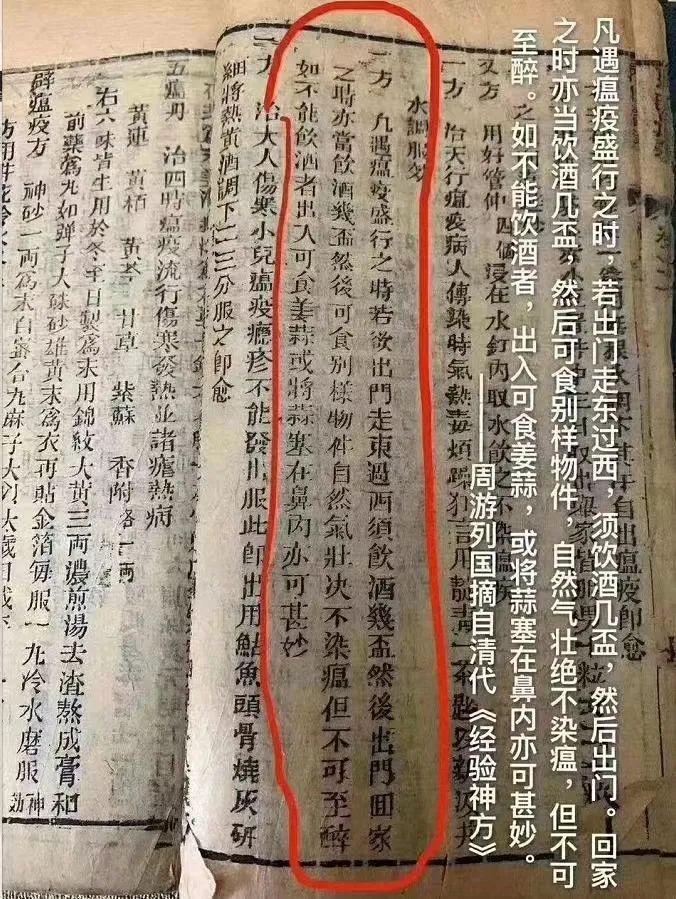 凡遇瘟疫盛行之时，若出门走东过西，须饮酒几盃，然后出门。回家
之时亦当饮酒几盃，然后可食别样物件，自然气壮绝不染瘟，但不可
至醉。如不能饮酒者，出入可食姜蒜，或将蒜塞在鼻内亦可甚妙。
———周游列国摘自清代《经验神方》
自出瘟疫即愈
又方 用好管仲四個浸在水缸內取水飲之不染瘟
一方 治天行瘟疫病人傳染時氣熱毒煩躁狂言用靛青一大匙以新汲井
水調服效
一方 凡遇瘟疫盛行之時若欲出門走東過西須飲酒幾盃然後出門回家
之時亦當飲酒幾盃然後可食别樣物件自然氣壯决不染瘟但不可至醉
如不能飲酒者出入可食姜蒜或將蒜塞在鼻內亦可甚妙
一方 治大人傷寒小兒瘟疫癮疹不能發出服此卽出用鮎魚頭骨燒灰研
細將熱黃酒調下二三分服之卽愈
五瘟丹 治四時瘟疫流行傷寒發熱並諸瘧熱病
黃連 黃栢 黃芩 甘草 紫蘇 香附各一兩
右六味皆生用於冬至日製爲末用錦紋大黃三兩濃煎湯去渣熬成膏和
前藥爲丸如弹子大硃砂雄黃末爲衣再貼金箔每服一丸冷水磨服神効
辟瘟疫方 神砂一兩爲末白蜜合丸麻子大